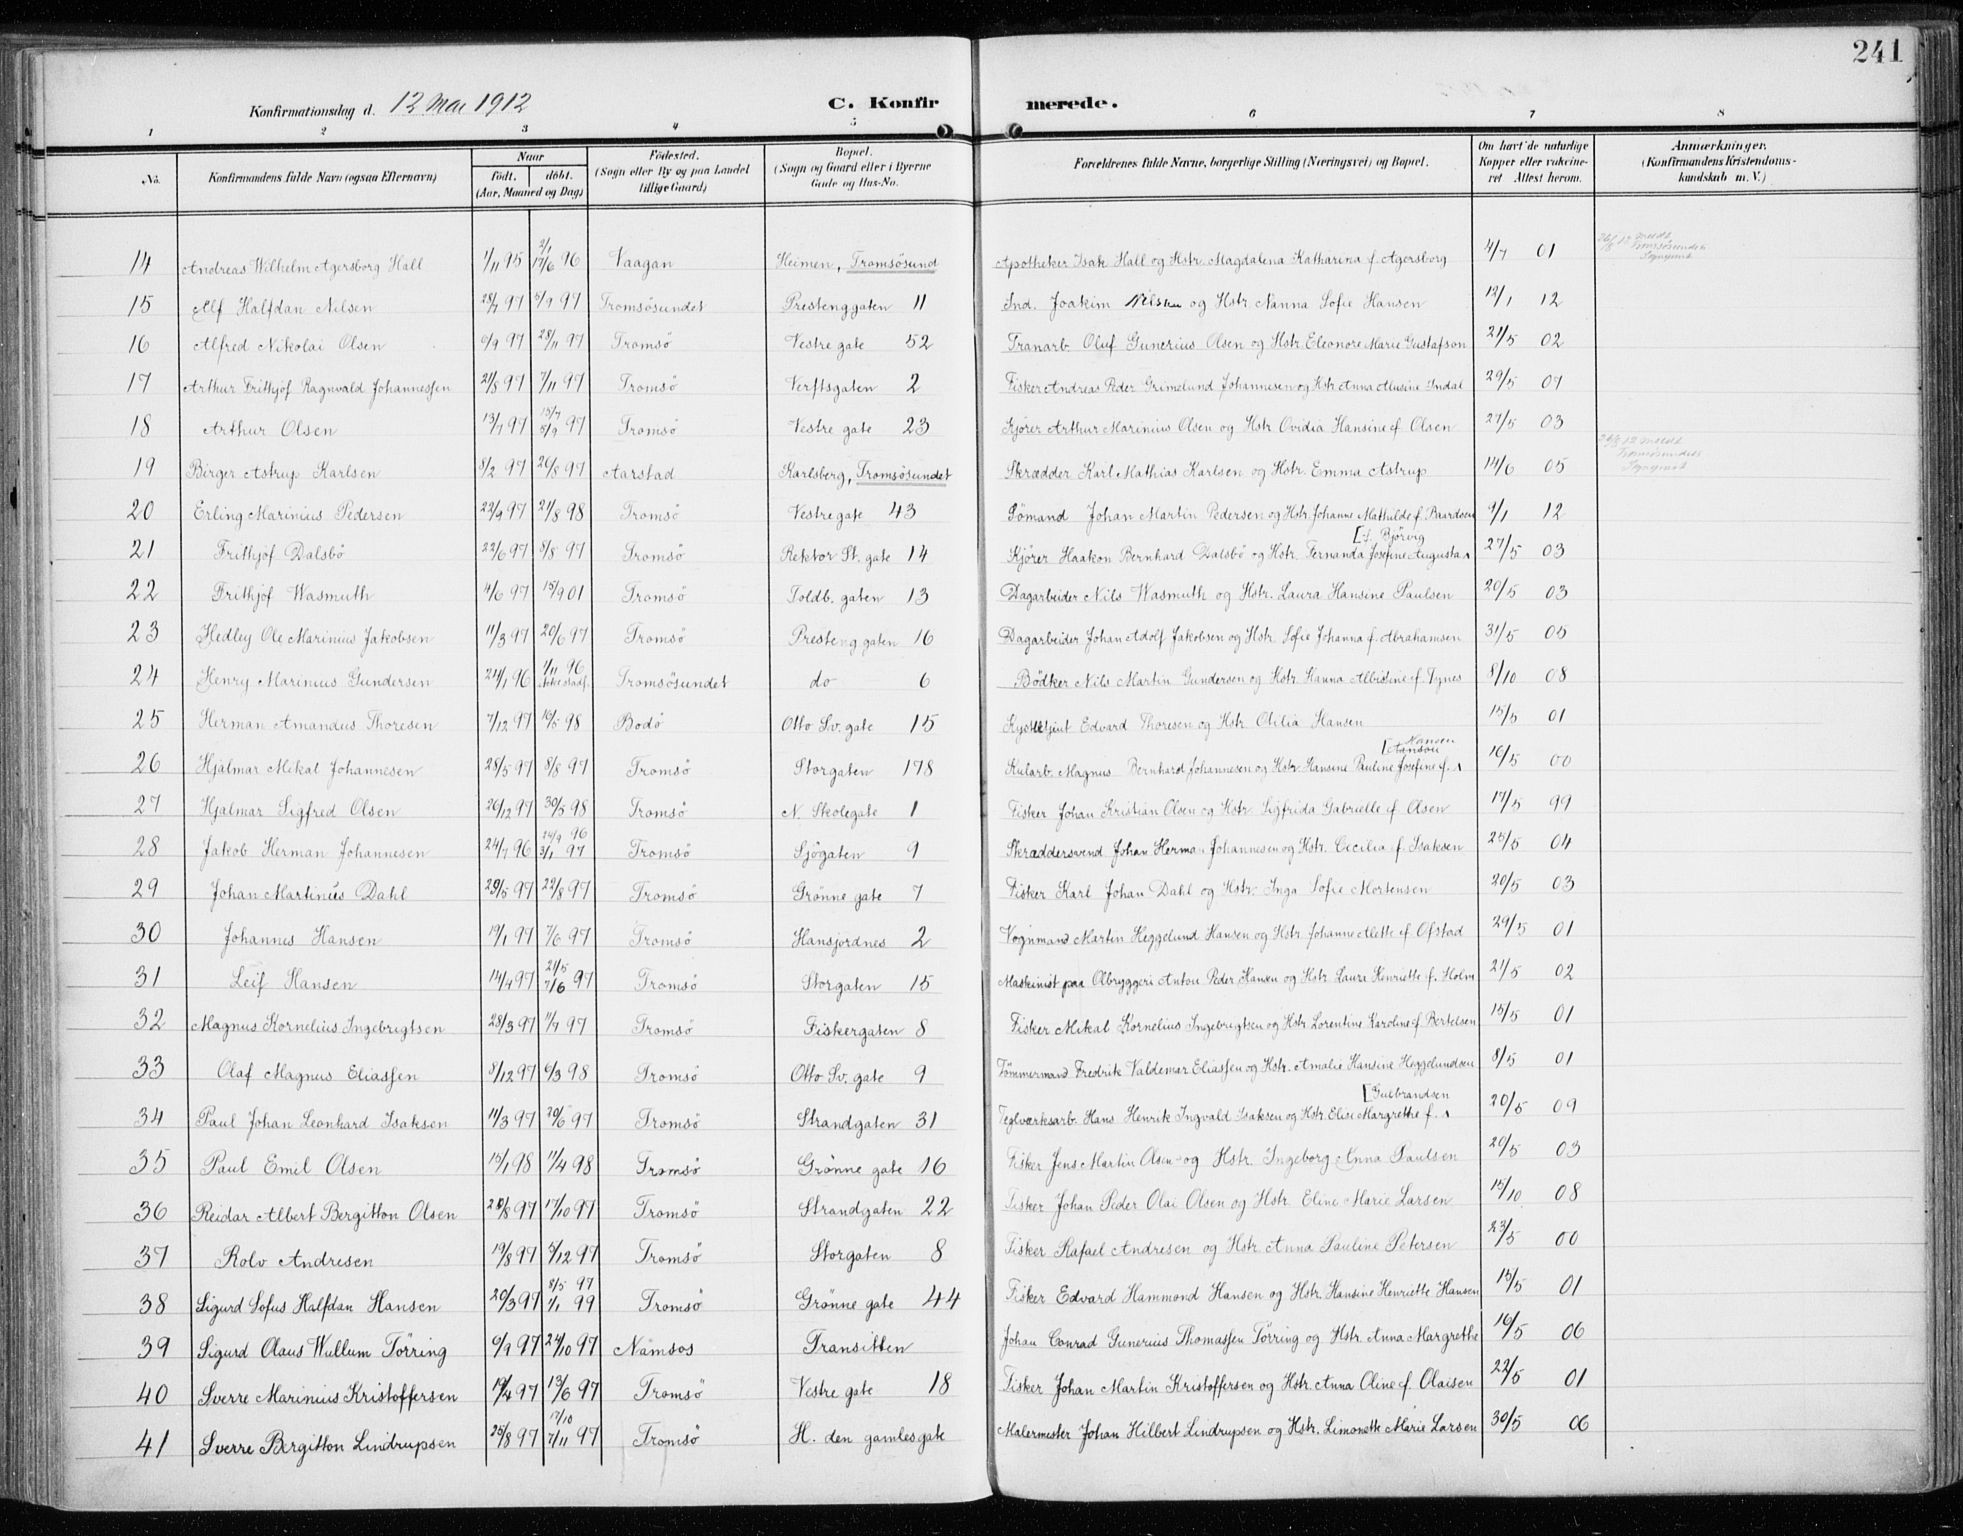 241
Konfirmationsdag d. 12 Mai 1912 C. Konfirmerede.
1 2 3 4 5 6 7 8
No. Konfirmandens fulde Navn (ogsaa Efternavn) Naar født. døbt. (Aar, Maaned og Dag) Fødested. (Sogn eller By og paa Landet tillige Gaard) Bopæl. (Sogn og Gaard eller i Byerne Gade og Hus-No. Forældrenes fulde Navne, borgerlige Stilling (Næringsvei) og Bopæl. Om havt de naturlige Kopper eller vakcineret Attest herom. Anmærkninger. (Konfirmandens Kristendomskundskab m. V.)
14 Andreas Wilhelm Agersborg Hall 1/11 95 2/1 17/6 96 Vaagan Heimen, Tromsösund Apotheker Isak Hall og Hstr. Magdalena Katharina f. Agersborg 4/7 01 meldt Tromsøsundets Sogneprest
15 Alf Halfdan Nilsen 28/7 97 5/9 97 Tromsösundet Prestenggaten 11 Ind. Joakim Nilsen og Hstr. Nanna Sofie Hansen 12/1 12
16 Alfred Nikolai Olsen 6/9 97 28/11 97 Tromsö Vestre gate 52 Tranarb. Oluf Gunerius Olsen og Hstr. Eleonore Marie Gustafson 21/5 02
17 Arthur Frithjof Ragnvald Johannessen 21/8 97 7/11 97 Tromsö Verftsgaten 2 Fisker Andreas Peder Grimelund Johannesen og Hstr Anna Alusine Indal 29/5 07
18 Arthur Olsen 13/7 97 15/7 5/9 97 Tromsö Vestre gate 23 Kjörer Arthur Marinius Olsen og Hstr. Ovidia Hansine f. Olsen 27/5 03
19 Birger Astrup Karlsen 8/2 97 26/8 97 Aarstad Karlsberg, Tromsösundet Skrædder Karl Mathias Karlsen og Hstr. Emma Astrup 14/6 05 meldt Tromsøsundets Sogneprest
20 Erling Marinius Pedersen 22/9 97 21/8 98 Tromsö Vestre gate 43 Sömand Johan Martin Pedersen og Hstr. Johanne Mathilde f. Baardsen 9/1 12
21 Frithjof Dalsbö 22/6 97 8/8 97 Tromsö Rektor St. gate 14 Kjörer Haakon Bernhard Dalsbö og Hstr. Fernanda Josefine Augusta [f. Björvig 27/5 03
22 Frithjof Wasmuth 4/6 97 15/9 01 Tromsö Toldb. gaten 13 Dagarbeider Nils Wasmuth og Hstr. Laura Hansine Paulsen 20/5 03
23 Hedley Ole Marinius Jakobsen 11/3 97 20/6 97 Tromsö Presteng gaten 16 Dagarbeider Johan Adolf Jakobsen og Hstr. Sofie Johanna f. Abrahamsen 31/5 05
24 Henry Marinius Gundersen 21/1 96 1/11 96 Tromsösundet do 6 Bödker Nils Martin Gundersen og Hstr. Hanna Albertine f. Tynes 8/10 08
25 Herman Amandus Thoresen 7/12 97 16/5 98 Bodö Otto Sv. gate 15 Edvard Thoresen og Hstr. Otilia Hansen 15/5 01
26 Hjalmar Mikal Johannesen 28/5 97 8/8 97 Tromsö Storgaten 178 Kularb. Magnus Bernhard Johannesen og Hstr. Hansine Pauline Josefine f. [Hansen 16/5 00
27 Hjalmar Sigfred Olsen 26/12 97 30/5 98 Tromsö N. Skolegate 1 Fisker Johan Kristian Olsen og Hstr. Sigfrida Gabrielle f. Olsen 17/5 99
28 Jakob Herman Johannesen 24/7 96 24/9 96 3/1 97 Tromsö Sjögaten 9 Skræddersvend Johan Herman Johannesen og Hstr. Cecilia f. Isaksen 25/5 04
29 Johan Martinius Dahl 29/5 97 22/8 97 Tromsö Grönne gate 7 Fisker Karl Johan Dahl og Hstr. Inga Sofie Mortensen 20/5 03
30 Johannes Hansen 19/1 97 7/6 97 Tromsö Hansjordnes 2 Vognmand Martin Heggelund Hansen og Hstr. Johanne Alette f. Ofstad 29/5 01
31 Leif Hansen 14/4 97 21/5 7/6 97 Tromsö Storgaten 15 Maskinist paa Ölbryggeri Anton Peder Hansen og Hstr Laura Henriette f. Holm 21/5 02
32 Magnus Kornelius Ingebrigtsen 28/3 97 11/7 97 Tromsö Fiskergaten 8 Fisker Mikal Kornelius Ingebrigtsen og Hstr Lorentine Karoline f. Bertelsen 15/5 01
33 Olaf Magnus Eliassen 8/12 97 6/3 98 Tromsö Otto Sv. gate 9 Tömmermand Fredrik Valdemar Eliassen og Hstr. Amalie Hansine Heggelundsen 8/5 01
34 Paul Johan Leonhard Isaksen 11/3 97 20/6 97 Tromsö Strandgaten 31 Teglværksarb. Hans Henrik Ingvald Isaksen og Hstr. Elise Margrethe f. [Gulbrandsen 20/5 09
35 Paul Emil Olsen 15/1 98 11/4 98 Tromsö Grönne gate 16 Fisker Jens Martin Olsen og Hstr. Ingeborg Anna Paulsen 26/5 03
36 Reidar Albert Bergitton Olsen 28/8 97 17/10 97 Tromsö Strandgaten 22 Fisker Johan Peder Olai Olsen og Hstr. Eline Marie Larsen 15/10 08
37 Rolv Andresen 19/8 97 5/12 97 Tromsö Storgaten 8 Fisker Rafael Andresen og Hstr. Anna Pauline Petersen 23/5 00
38 Sigurd Sofus Halfdan Hansen 20/3 97 8/5 97 1/1 99 Tromsö Grönne gate 44 Fisker Edvard Hammond Hansen og Hstr. Hansine Henriette Hansen 15/5 01
39 Sigurd Olaus Wullum Törring 6/9 97 24/10 97 Namsos Transitten Johan Conrad Gunerius Thomassen Törring og Hstr. Anna Margrethe 16/5 06
40 Sverre Marinius Kristoffersen 19/4 97 13/6 97 Tromsö Vestre gate 18 Fisker Johan Martin Kristoffersen og Hstr. Anna Oline f. Olaisen 22/5 01
41 Sverre Bergitton Lindrupsen 25/8 97 17/10 7/11 97 Tromsö H. den gamles gate Malermester Johan Hilbert Lindrupsen og Hstr. Limonette Marie Larsen 30/5 06